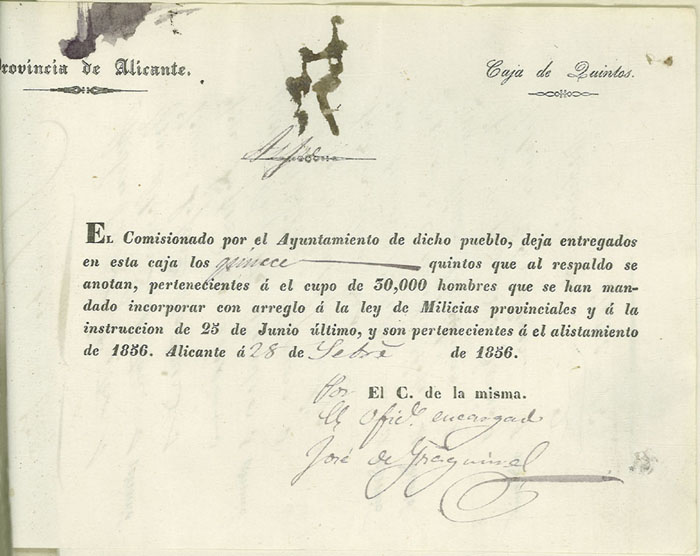 Provincia de Alicante.
Caja de Quintos.
Aspe
EL Comisionado por el Ayuntamiento de dicho pueblo, deja entregados
en esta caja los quince quintos que al respaldo se
anotan, pertenecientes á el cupo de 30,000 hombres que se han man-
dado incorporar con arreglo á la ley de Milicias provinciales y á la
instruccion de 25 de Junio último, y son pertenecientes á el alistamiento
de 1856. Alicante á 28 de Setre de 1856.
Por El C. de la misma.
El Ofic. encargad
José de